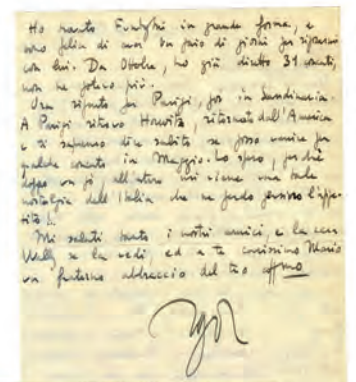 Ho trovato in grande forma, e
sono felice di aver un paio di giorni per riposarmi
con lui. Da Ottobre, ho già diretto 31 concerti,
non ne potevo più.
Ora riparto per Parigi, poi in Scandinavia.
A Parigi ritrovo Horwitz, ritornato dall'America
e ti sapremo dire subito se posso venire per
qualche concerto in Maggio. Lo spero, perchè
doppo un pò all'estero mi viene una tale
nostalgia dell'Italia che ne perdo persino l'appe-
tito!.
Mi saluti tanto i nostri amici e la cara
Wally se la vedi, ed a te carissimo Mario
un fraterno abbraccio del tuo affmo
Igor